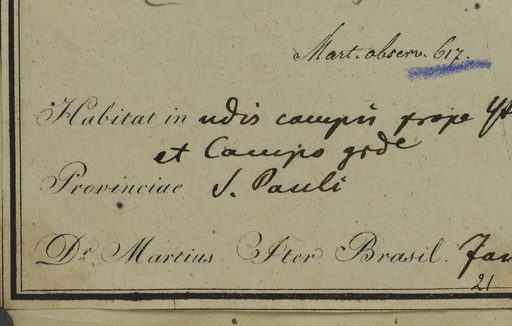 Mart. observ. 617.
Habitat in udis campis prope Yt
et Campo grde
Provinciae S. Pauli
Dr. Martius Iter Brasil. Jan
21